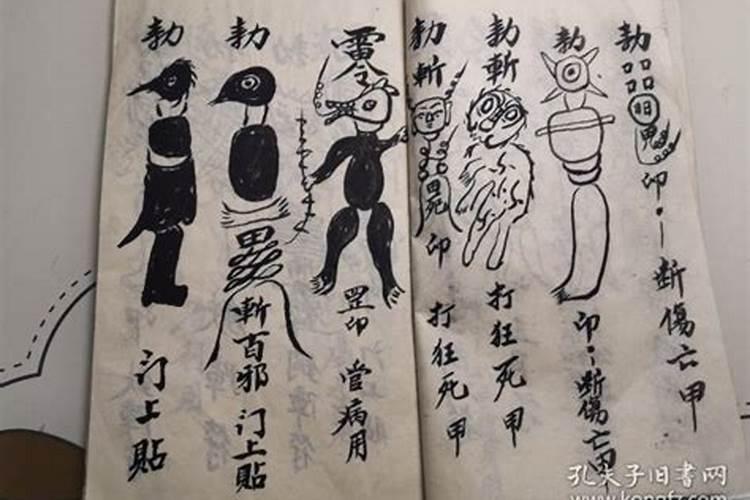 勅
印断傷亡甲
勅
印断傷亡甲
勅斬
打狂死甲
勅斬
印
打狂死甲
雷令
罡印
當病用
勅
斬百邪门上貼
勅
门上貼
孔夫子旧书网